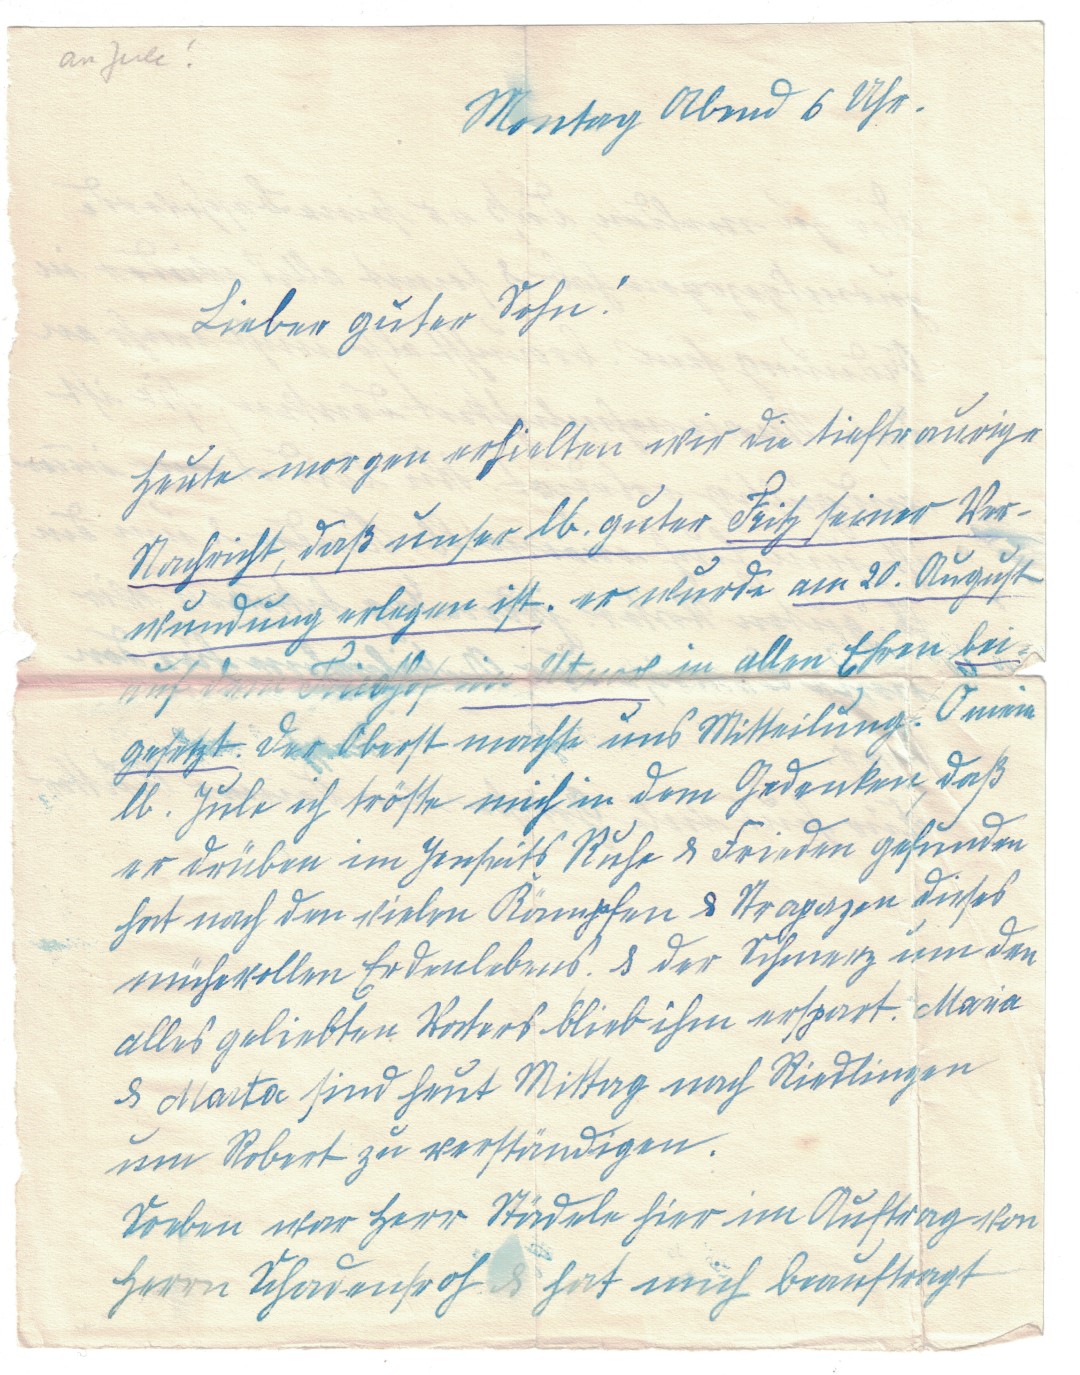 an Jule!
Montag Abend 6 Uhr.
Lieber guter Sohn!
Heute morgen erhielten wir die tieftraurige
Nachricht, daß unser lb. guter Fritz seiner Ver-
wundung erlegen ist. er wurde am 20. August
auf dem Friedhof in in allen Ehren bei-
gesetzt. Der Oberst machte uns Mitteilung. O mein
lb. Jule ich tröste mich in dem Gedenken, daß
er drüben im Jenseits Ruhe & Frieden gefunden
hat nach den vielen Kämpfen & Strapazen dieses
mühevollen Erdenlebens. & der Schmerz um den
alles geliebten Vaters blieb ihm erspart. Maria
& Marta sind heut Mittag nach Riedlingen
um Robert zu verständigen.
Soeben war Herr Städele hier im Auftrag von
Herrn & hat mich beauftragt